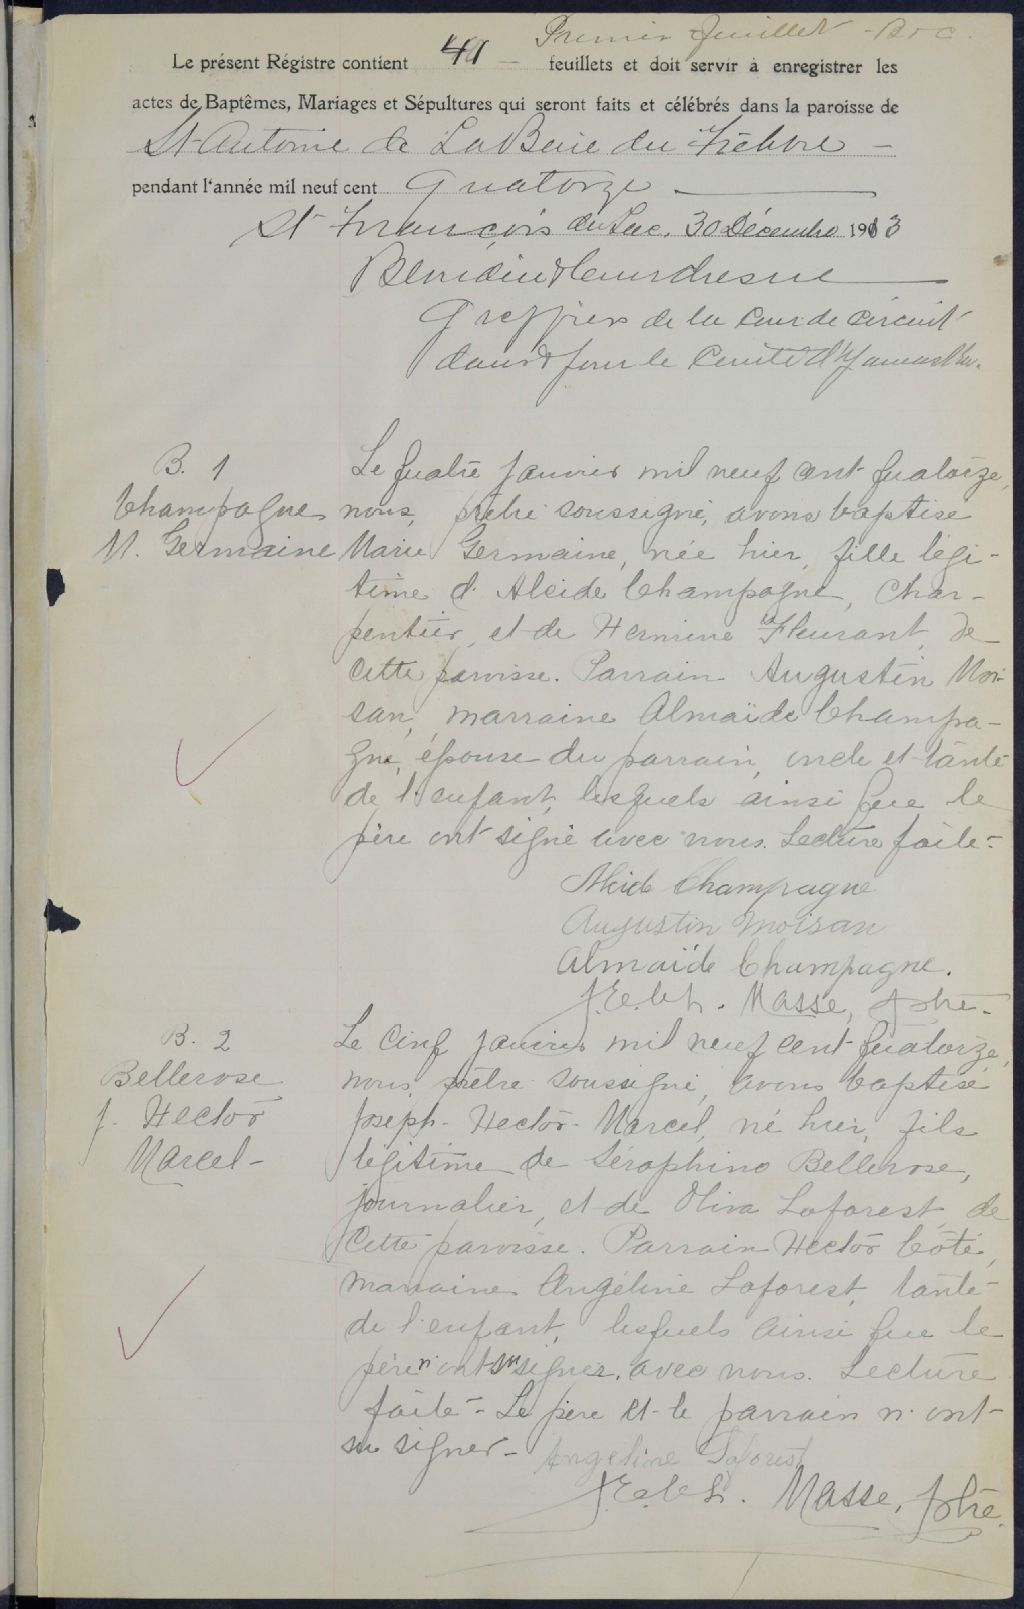 Premier feuillet - B.C.
Le présent Régistre contient 49 - feuillets et doit servir à enregistrer les
actes de Baptêmes, Mariages et Sépultures qui seront faits et célébrés dans la paroisse de
St Antoine de La Baie du Fèbvre -
pendant l'année mil neuf cent Quatorze -
St François du Lac, 30 Décembre 1913
Greffier de la Cour de Circuit
dans & pour le Comté d'Yamaska.
B. 1
Champagne
M. Germaine
Le quatre janvier mil neuf cent quatorze,
nous, prêtre soussigné, avons baptisé
Marie Germaine, née hier, fille légi-
time d'Alcide Champagne, char-
pentier, et de Hermine Fleurant, de
cette paroisse. Parrain Augustin Moi-
san, marraine Almaïde Champa-
gne, épouse du parrain, oncle et tante
de l'enfant, lesquels ainsi que le
père ont signé avec nous. Lecture faite.-
Alcide Champagne
Augustin Moisan
Almaïde Champagne.
J. E. Masse, ptre.
B. 2
Bellerose
J. Hector
Marcel -
Le cinq janvier mil neuf cent quatorze,
nous, prêtre soussigné, avons baptisé
Joseph-Hector-Marcel, né hier, fils
légitime de Séraphino Bellerose,
journalier, et de Oliva Laforest, de
cette paroisse. Parrain Hector Côté,
marraine Angéline Laforest, tante
de l'enfant, lesquels ainsi que le
père n'ont su signer avec nous. Lecture
faite - Le père et le parrain n'ont
su signer - Angeline Laforest
J. E. Masse, ptre.